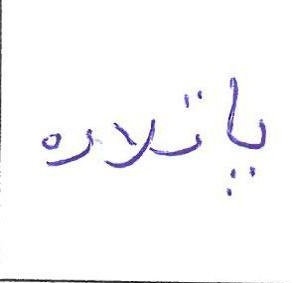 پاتلاره